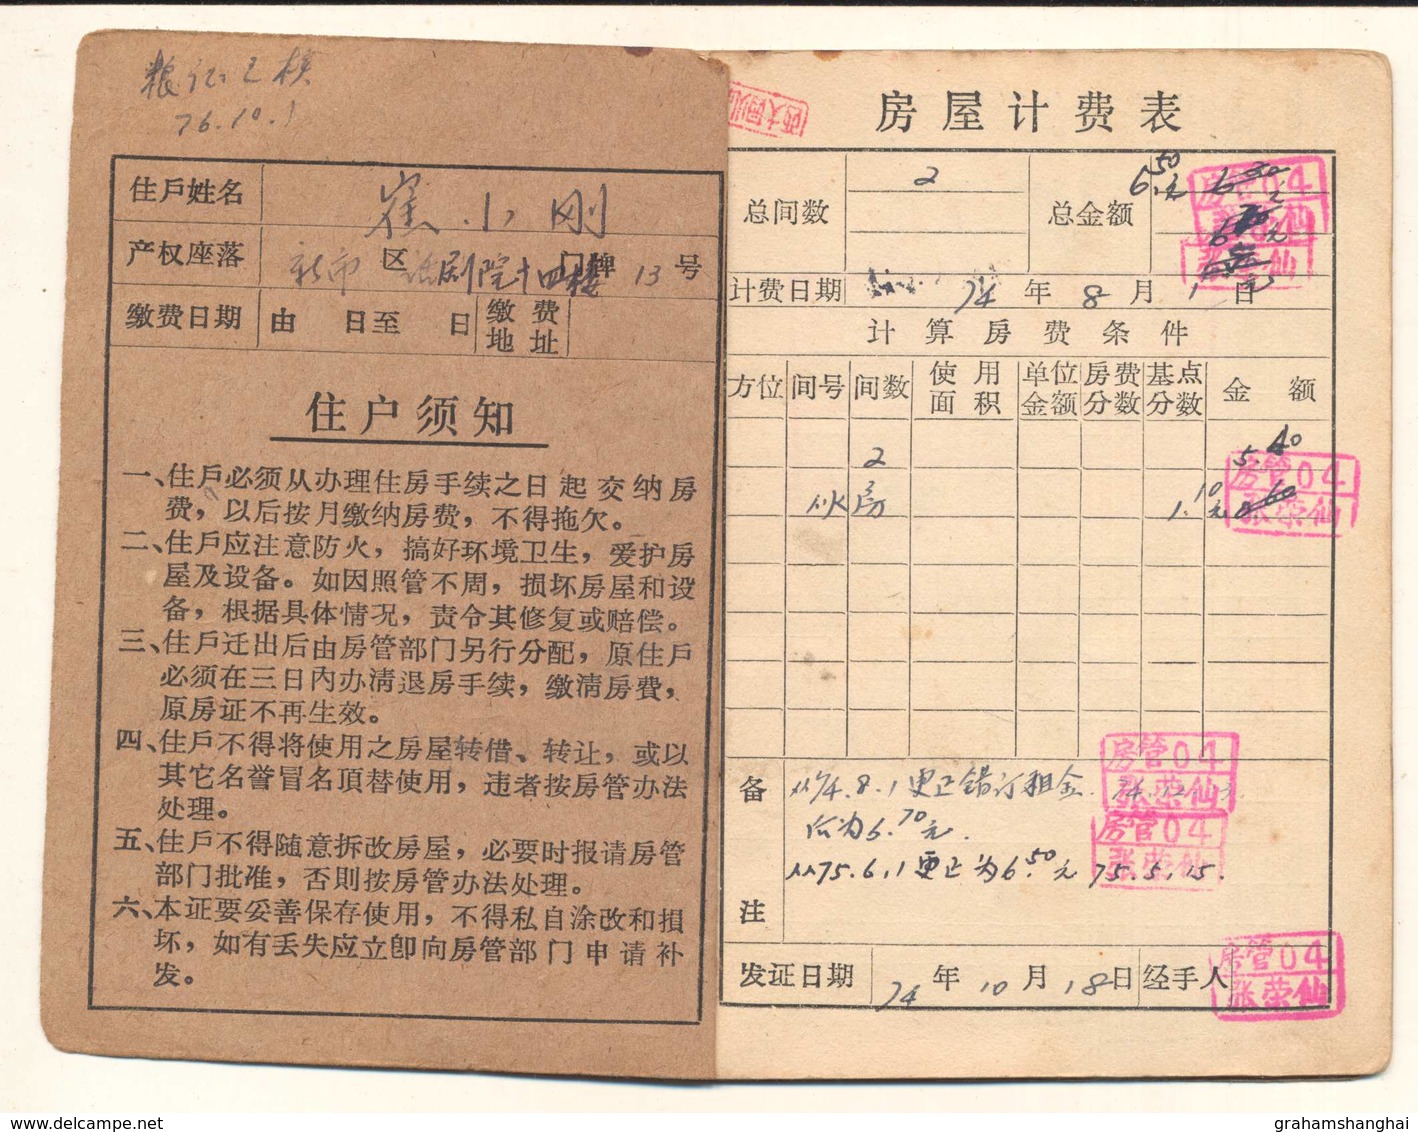 粮证已核
76.10.1
住戶姓名 崔小刚
产权座落 新市 区 话剧院十四楼 门牌 13 号
缴费日期 由 日至 日 缴费地址
住户须知
一、住戶必须从办理住房手续之日起交纳房
费，以后按月缴纳房费，不得拖欠。
二、住戶应注意防火，搞好环境卫生，爱护房
屋及设备。如因照管不周，损坏房屋和设
备，根据具体情况，责令其修复或赔偿。
三、住戶迁出后由房管部门另行分配，原住戶
必须在三日内办清退房手续，缴清房费，
原房证不再生效。
四、住戶不得将使用之房屋转借、转让，或以
其它名誉冒名頂替使用，违者按房管办法
处理。
五、住戶不得随意拆改房屋，必要时报请房管
部门批准，否则按房管办法处理。
六、本证要妥善保存使用，不得私自涂改和損
坏，如有丢失应立卽向房管部门申请补
发。
房屋计费表
总间数 2 总金额 6.50元
房管04
张荣仙
计费日期 74 年 8 月 1 日
计算房费条件
方位 间号 间数 使用面积 单位金额 房费分数 基点分数 金额
2 5.40
伙房 1.10元
房管04
张荣仙
备注
从74.8.1更正错订租金
后为6.70元.
从75.6.1更正为6.50元 75.5.15.
房管04
张荣仙
房管04
张荣仙
发证日期 74 年 10 月 18 日 经手人
房管04
张荣仙
delcampe.net
grahamshanghai